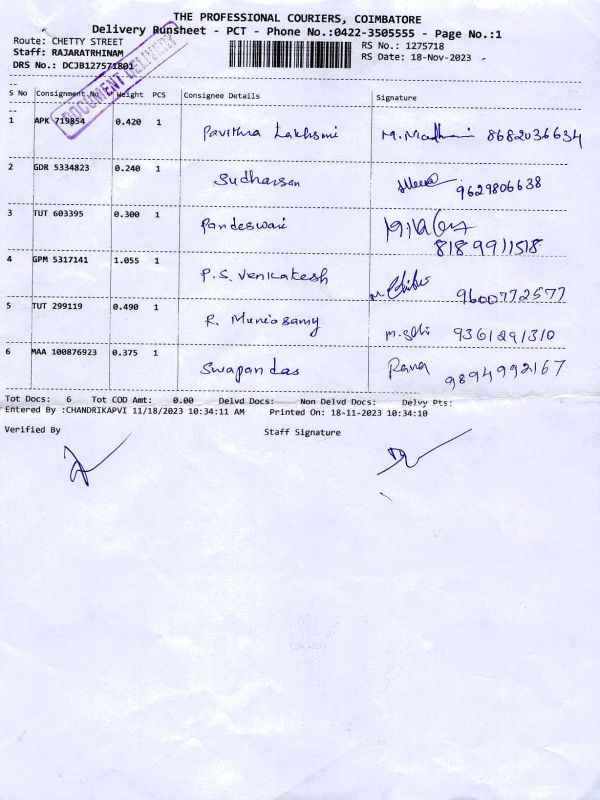 THE PROFESSIONAL COURIERS, COIMBATORE
Delivery Runsheet - PCT - Phone No.:0422-3505555 - Page No.:1
Route: CHETTY STREET
RS No.: 1275718
Staff: RAJARATRHINAM
RS Date: 18-Nov-2023 -
DRS No.: DCJB127571801
DOCUMENT DELIVERY
S No Consignment No Weight PCS Consignee Details Signature
1 APK 719854 0.420 1 Pavithra Lakhsmi M. Madhavi 8682036634
2 GDR 5334823 0.240 1 Sudharsan 9629806638
3 TUT 603395 0.300 1 Pandeswari
8189911518
4 GPM 5317141 1.055 1 P.S. Venkatesh 9600772577
5 TUT 299119 0.490 1 R. Muniosamy 9361291310
6 MAA 100876923 0.375 1 Swapan das Rana 9894992167
Tot Docs: 6 Tot COD Amt: 0.00 Delvd Docs: Non Delvd Docs: Delvy Pts:
Entered By :CHANDRIKAPVI 11/18/2023 10:34:11 AM Printed On: 18-11-2023 10:34:10
Verified By Staff Signature